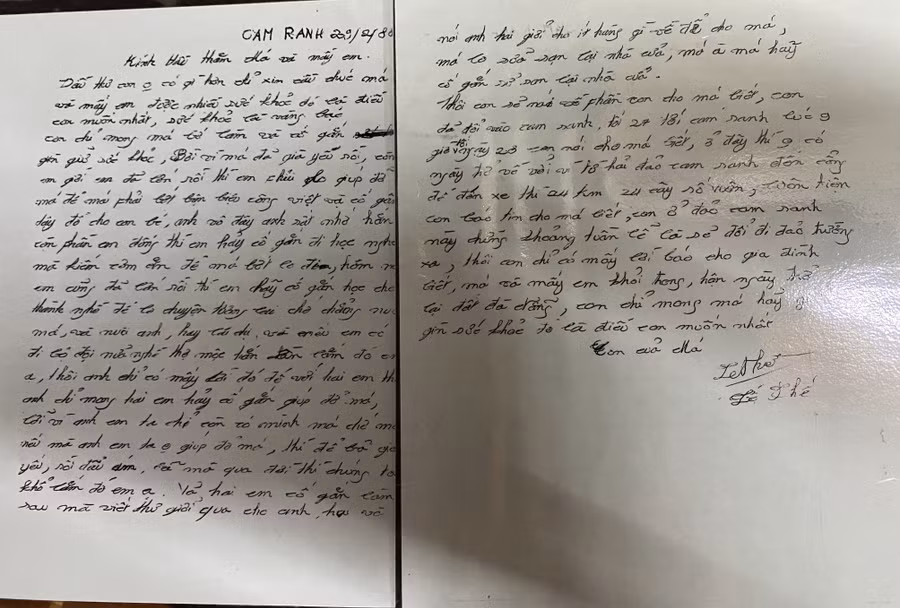 CAM RANH 29/2/88
Kính thư thăm Má và mấy em.
Đầu thư con o có gì hơn chỉ xin cầu chúc má
và mấy em được nhiều sức khỏe đó là điều
con muốn nhất, sức khỏe là vàng bạc
con chỉ mong má bớt làm và cố gắn
gìn giữ sức khỏe, Bởi vì má đã già yếu rồi, còn
em giới em đã lớn rồi thì em phải giúp đỡ
má để má phải bớt công việt và cố gắn
dậy dỗ cho em bé, anh vô đây anh rất nhớ
còn phần em đông thì em hãy cố gắn đi học nghề
mà kiếm cơm ăn để má bớt lo
em cũng đã lớn rồi thì em hãy cố gắn học cho
thành nghề để lo chuyện tương lai chớ chẳng
má, và nuôi anh, hay là chị, và nếu em có
đi bộ đội nữa nghề thợ mộc lắm đó em
a, thôi anh chỉ có mấy lời đó để với hai em thì
anh chỉ mong hai em hãy cố gắn giúp đỡ má,
bởi vì anh em ta chỉ còn có mình má
nếu mà anh em ta o giúp đỡ má, thì để bả già
yếu, rồi đau ốm, má qua đời thì chúng ta
khổ lắm đó em a. Và hai em cố gắn làm
sau mà viết thư giởi qua cho anh, và
nói anh hai giởi cho ít hàng gì về để cho má,
má lo sửa sạn lại nhà cửa, má à má hãy
cố gắn sử sạn lại nhà cửa.
Thôi con sẽ nói về phần con cho má biết, con
đã đổi vào cam ranh, tối 27 tới cam ranh lúc 9
giờ ngày 28 con nói cho má biết, ở đây thì o có
ngày hè về với vì từ hải đảo cam ranh đến cổng
để đón xe thì 24 km 24 cây số vuôn, luôn tiện
con báo tin cho má biết, con ở đảo cam ranh
này chừng khoảng tuần lể là sẽ đổi đi đảo trường
xa, thôi con chỉ có mấy lời báo cho gia đình
biết, má và mấy em khỏi trong, hận ngày trở
lại đất đà đẵng, con chỉ mong má hãy
gìn sức khỏe đó là điều con muốn nhất
Con của Má
Lê Thế